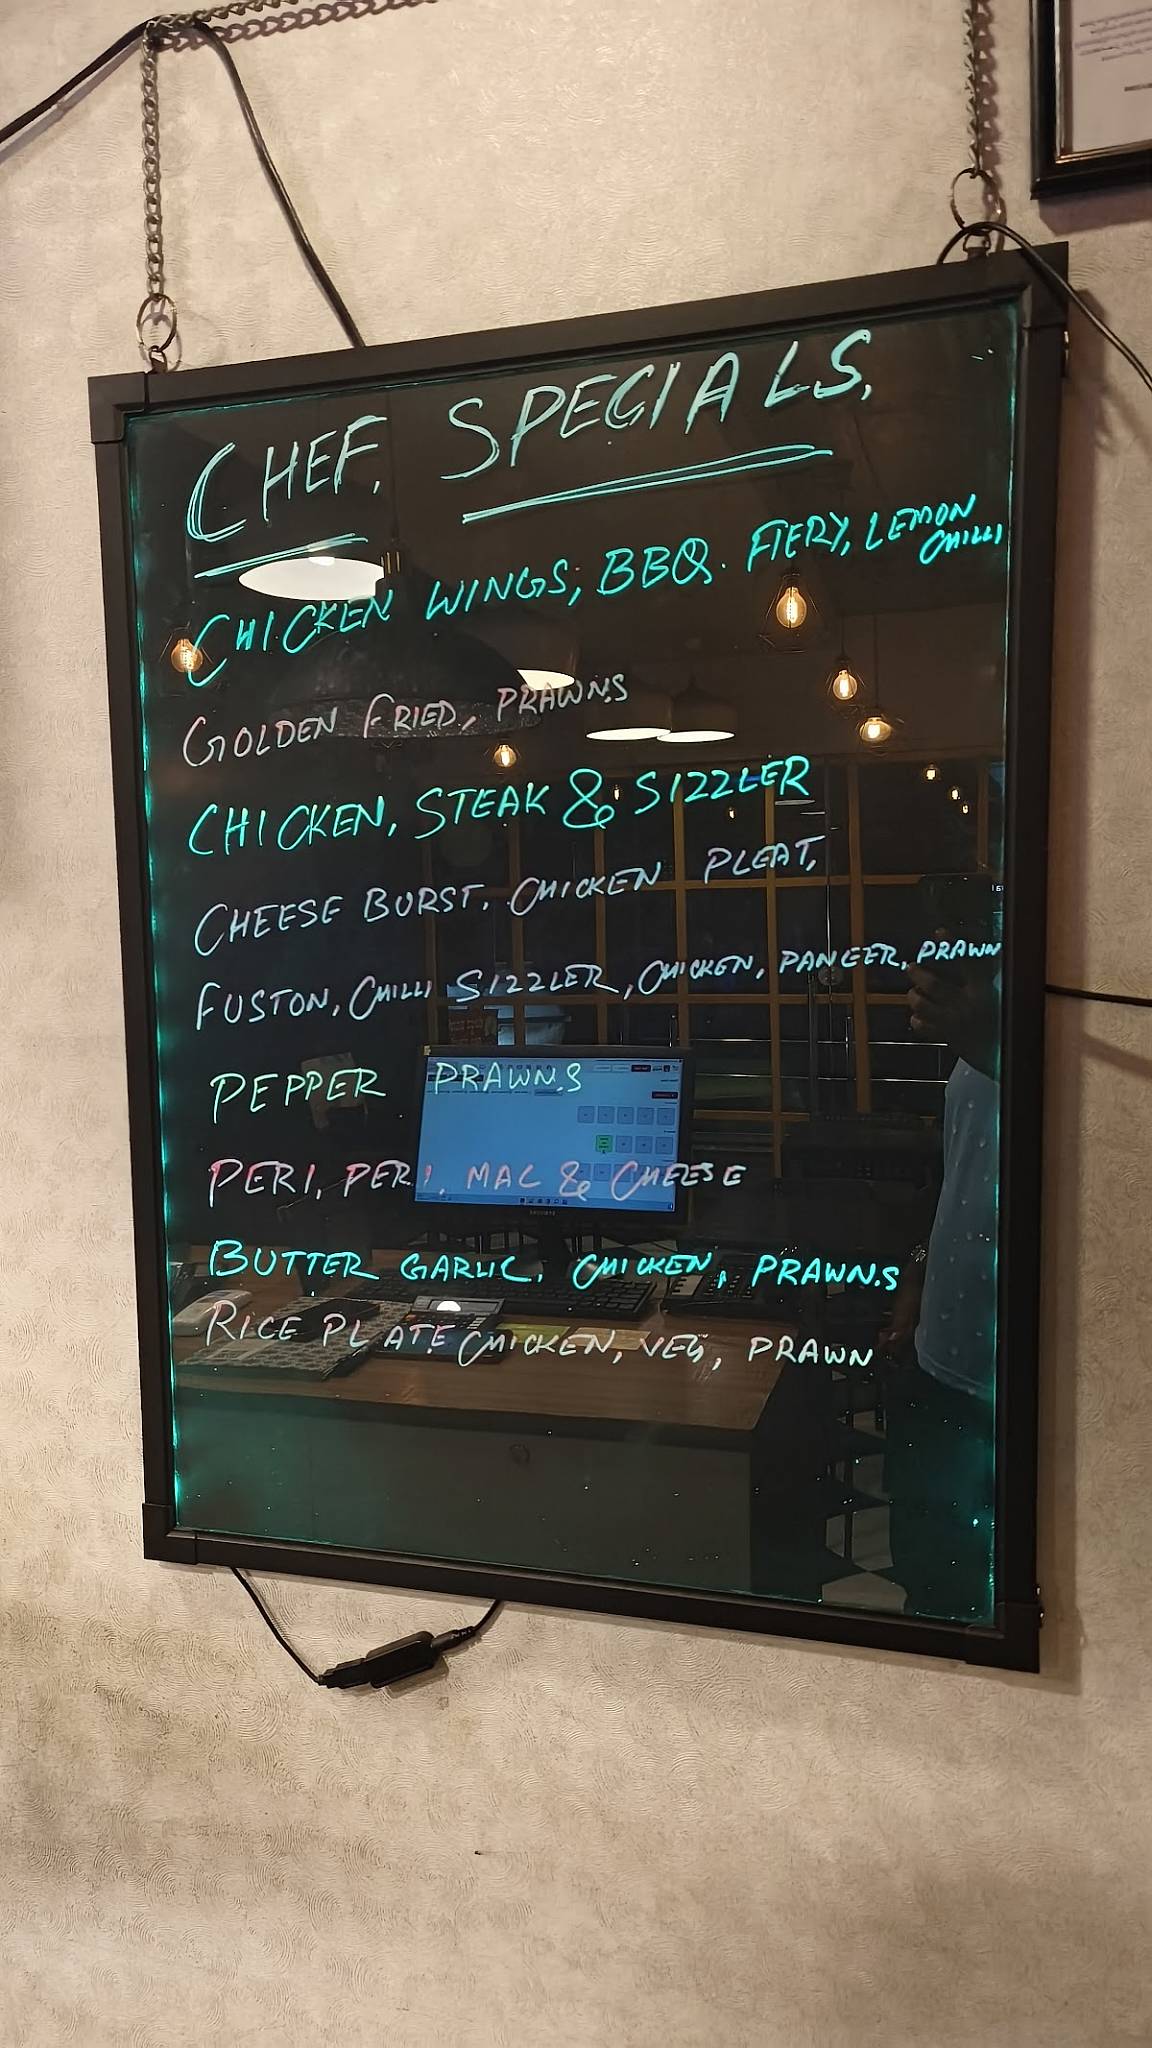 CHEF. SPECIALS.
CHICKEN WINGS, BBQ. FIERY, LEMON
CHILLI
GOLDEN FRIED, PRAWN.S
CHICKEN, STEAK & SIZZLER
CHEESE BURST, CHICKEN PLEAT,
FUSTON, CHILLI SIZZLER, CHICKEN, PANEER, PRAWN
PEPPER PRAWN.S
PERI, PERI, MAC & CHEESE
BUTTER GARLIC, CHICKEN, PRAWN.S
RICE PLATE CHICKEN, VEG, PRAWN